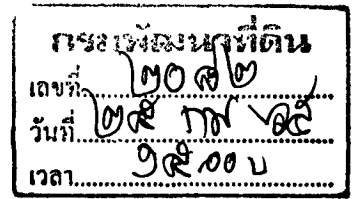 กรมพัฒนาที่ดิน
เลขที่ ๒๐๘๒
วันที่ ๒๕ กพ ๖๕
เวลา ๑๕.๐๐ น